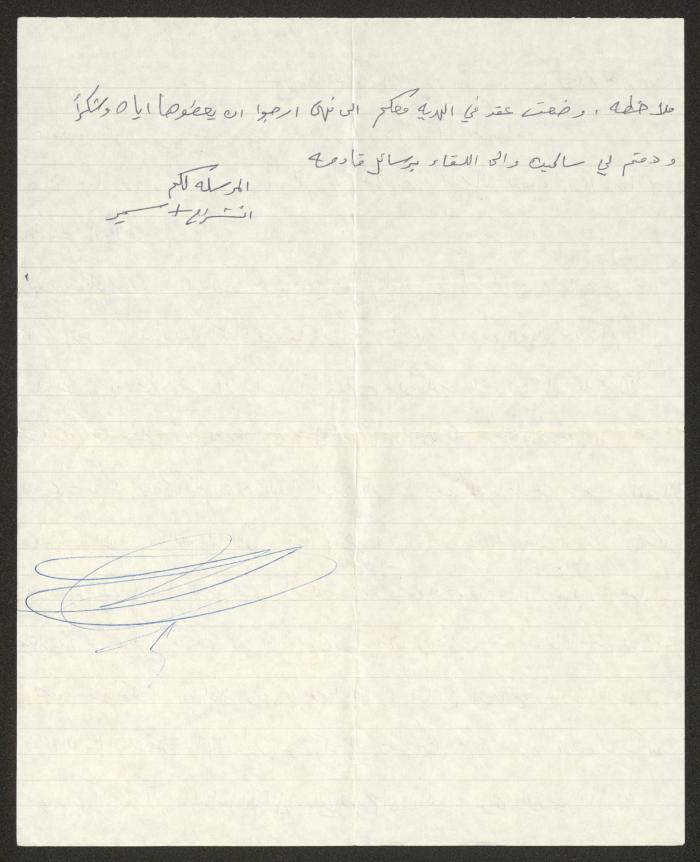 ملاحظه ، وضعت عقد في الهديه معكم الى نهى ارجوا ان يعطوها اياه وشكراً
ودمتم لي سالمين والى اللقاء برسائل قادمه
المرسله لكم
انشراح + سمير